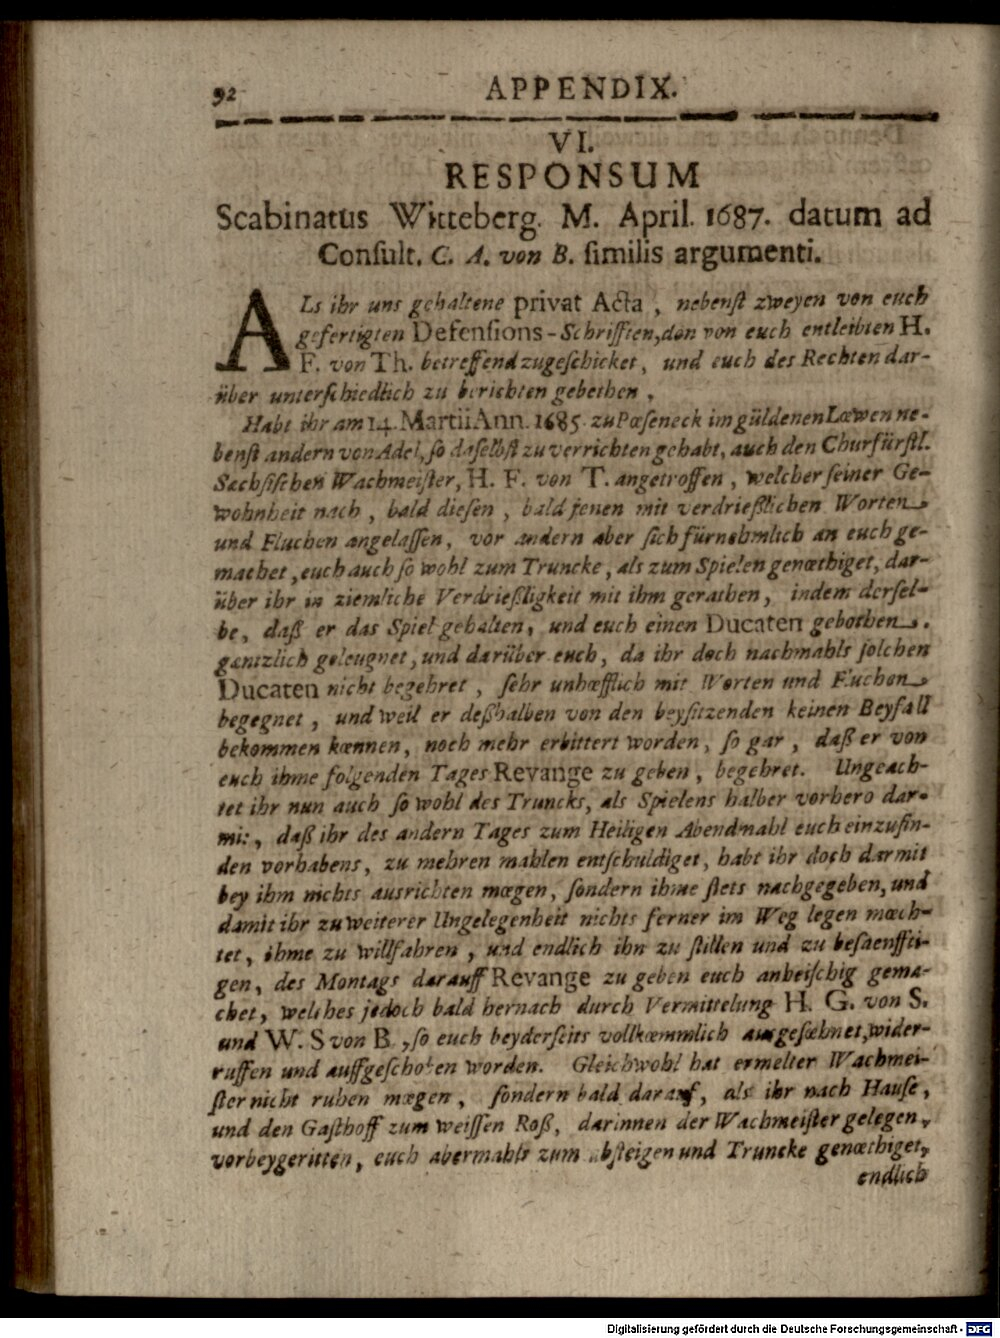 92 APPENDIX.
VI.
RESPONSUM
Scabinatus Witteberg. M. April. 1687. datum ad
Consult. C. A. von B. similis argumenti.
ALs ihr uns gehaltene privat Acta, nebenst zweyen von euch
gefertigten Defensions-Schrifften, den von euch entleibten H.
F. von Th. betreffend zugeschicket, und euch des Rechten dar-
über unterschiedlich zu berichten gebethen,
Habt ihr am 14. Martii Ann. 1685. zu Pœseneck im güldenen Lœwen ne-
benst andern von Adel, so daselbst zu verrichten gehabt, auch den Churfürstl.
Sæchsischen Wachmeister, H. F. von T. angetroffen, welcher seiner Ge-
wohnheit nach, bald diesen, bald jenen mit verdrießlichen Worten
und Fluchen angelassen, vor andern aber sich fürnehmlich an euch ge-
machet, euch auch so wohl zum Truncke, als zum Spielen genœthiget, dar-
über ihr in ziemliche Verdrießligkeit mit ihm gerathen, indem dersel-
be, daß er das Spiel gehalten, und euch einen Ducaten gebothen.
gæntzlich geleugnet, und darüber euch, da ihr doch nachmahls solchen
Ducaten nicht begehret, sehr unhœfflich mit Worten und Fluchen
begegnet, und weil er deßhalben von den beysitzenden keinen Beyfall
bekommen kœnnen, noch mehr erbittert worden, so gar, daß er von
euch ihme folgenden Tages Revange zu geben, begehret. Ungeach-
tet ihr nun auch so wohl des Truncks, als Spielens halber vorhero dar-
mit, daß ihr des andern Tages zum Heiligen Abendmahl euch einzufin-
den vorhabens, zu mehren mahlen entschuldiget, habt ihr doch darmit
bey ihm nichts ausrichten mœgen, sondern ihme stets nachgegeben, und
damit ihr zu weiterer Ungelegenheit nichts ferner im Weg legen mœch-
tet, ihme zu willfahren, und endlich ihn zu stillen und zu besaenffti-
gen, des Montags darauff Revange zu geben euch anheischig gema-
chet, welches jedoch bald hernach durch Vermittelung H. G. von S.
und W. S von B., so euch beyderseits vollkœmmlich ausgesœhnet, wider-
ruffen und auffgeschoben worden. Gleichwohl hat ermelter Wachmei-
ster nicht ruhen mœgen, sondern bald darauf, als ihr nach Hause,
und den Gasthoff zum weissen Roß, darinnen der Wachmeister gelegen,
vorbeygeritten, euch abermahls zum absteigen und Truncke genœthiget,
endlich
Digitalisierung gefördert durch die Deutsche Forschungsgemeinschaft - DFG